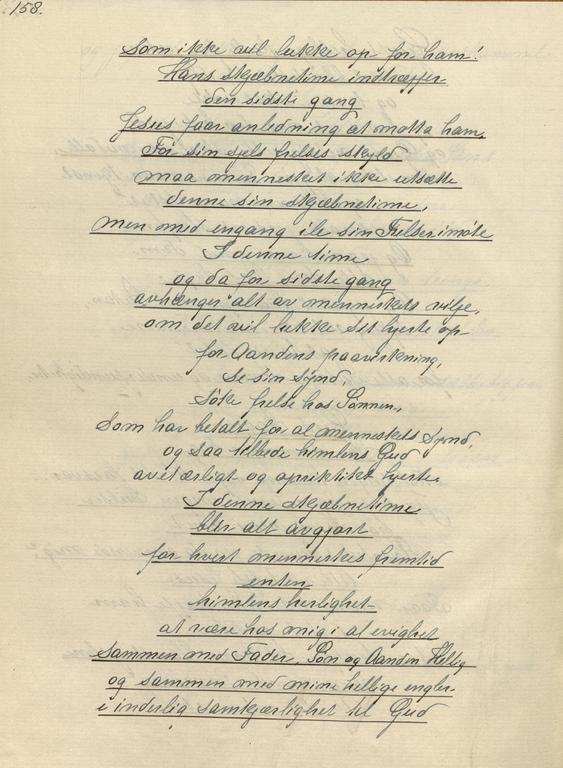 158.
som ikke vil lukke op for ham!
Hans skjæbnetime indtræffer
den sidste gang
Jesus faar anledning at motta ham.
For sin sjels frelses skyld
maa mennesket ikke utsætte
denne sin skjæbnetime,
men med engang ile sin Frelser imøte
I denne time
og da for sidste gang
avhænger alt av menneskets vilje,
om det vil lukke sit hjerte op
for Aandens paavirkning,
se sin synd,
søke frelse hos Sønnen,
som har betalt for al menneskets synd,
og saa tilbede himlens Gud
av et ærligt og opriktikt hjerte.
I denne skjæbnetime
blir alt avgjort
for hvert menneskes fremtid
enten
himlens herlighet
at være hos mig i al evighet
sammen med Fader, Søn og Aanden Hellig
og sammen med mine hellige engler
i inderlig samkjærlighet til Gud